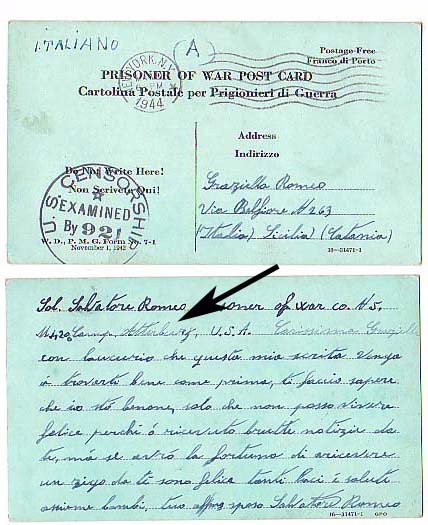 ITALIANO
(A)
Postage-Free
Franco di Porto
NEW YORK, N.Y.
PM
1944
PRISONER OF WAR POST CARD
Cartolina Postale per Prigionieri di Guerra
Address
Indirizzo
Do Not Write Here!
Non Scrivete Qui!
U.S. CENSORSHIP
EXAMINED
By 921
W. D., P. M. G. Form No. 7-1
November 1, 1942
Graziella Romeo
Via Belfiore N 263
(Italia) Sicilia (Catania)
16—31471-1
Sol. Salvatore Romeo prisoner of war co. N5,
Camp Atterbury, U.S.A. Carissima
con l'auccurio che questa mia scrita Venga
á trovarti bene come prima, ti faccio sapere
che io stó benone, solo che non posso vivere
felice perchi ó ricevuto brutte notizie da
te, má se avró la fortuna di ricevere
un rigo da ti sono felice tanti baci é saluti
assieme bambi, tuo affmo sposo Salvatore Romeo
16—31471-1 GPO